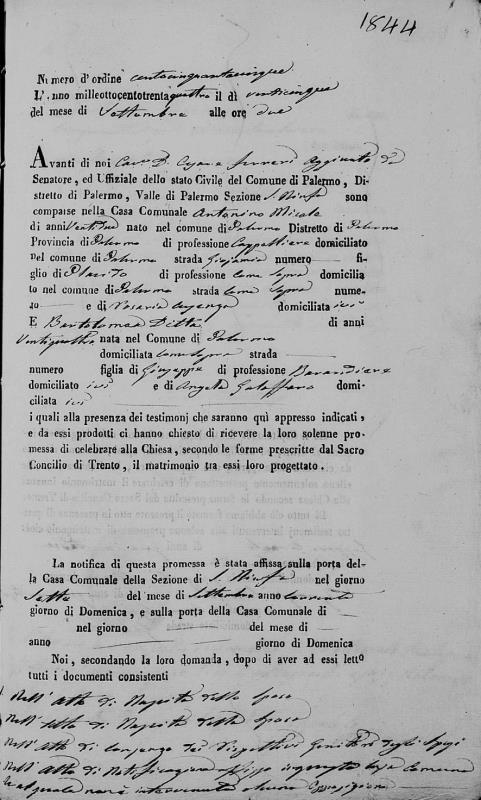 1844
Numero d'ordine centocinquantacinque
L'anno milleottocentotrentaquattro il dì venticinque
del mese di Settembre alle ore due
Avanti di noi Cav. D. Cesare Aggiunto da
Senatore, ed Uffiziale dello stato Civile del Comune di Palermo, Di-
stretto di Palermo, Valle di Palermo Sezione S. Ninfa sono
comparse nella Casa Comunale Antonino Micale
di anni nato nel comune di Palermo Distretto di Palermo
Provincia di Palermo di professione Cappelliere domiciliato
nel comune di Palermo strada numero — fi-
glio di Placido di professione come sopra domicilia
to nel comune di Palermo strada come sopra nume-
ro — e di Rosaria domiciliata ivi
E Bartolomea Ditta di anni
Ventiquattro nata nel Comune di Palermo
domiciliata come sopra strada —
numero figlia di Giuseppe di professione
domiciliato ivi e di Angela domi-
ciliata ivi
i quali alla presenza dei testimonj che saranno quì appresso indicati,
e da essi prodotti ci hanno chiesto di ricevere la loro solenne pro-
messa di celebrare alla Chiesa, secondo le forme prescritte dal Sacro
Concilio di Trento, il matrimonio tra essi loro progettato.
La notifica di questa promessa è stata affissa sulla porta del-
la Casa Comunale della Sezione di S. Ninfa nel giorno
Sette del mese di Settembre anno corrente
giorno di Domenica, e sulla porta della Casa Comunale di —
nel giorno — del mese di —
anno — giorno di Domenica
Noi, secondando la loro domanda, dopo di aver ad essi letto
tutti i documenti consistenti
Nell'Atto di Nascita dello Sposo
Nell'Atto di Nascita della Sposa
Nell'Atto di dei Rispettivi Genitori degli Sposi
Nell'Atto di Notificazione affisso in questa Casa Comunale
la quale non è intervenuta alcuna Opposizione